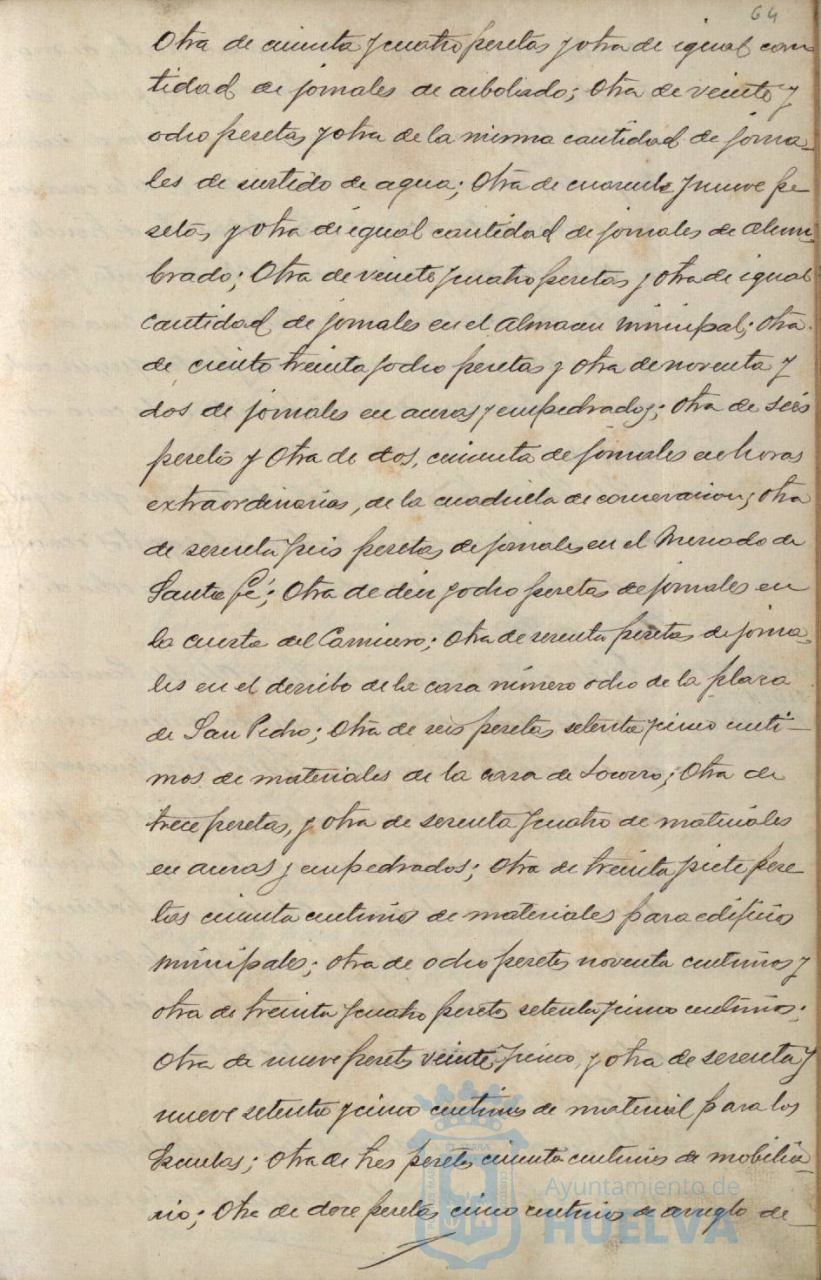 64
Otra de cincuenta y cuatro pesetas y otra de igual can
tidad de jornales de arbolado; Otra de veinte y
ocho pesetas y otra de la misma cantidad de jorna-
les de surtido de agua; Otra de cuarenta y nueve pe
setas, y otra de igual cantidad de jornales de alum
brado; Otra de veinte y cuatro pesetas y otra de igual
cantidad de jornales en el Almacen municipal; otra
de ciento treinta y ocho pesetas y otra de noventa y
dos de jornales en aceras y empedrados; otra de seis
pesetas y Otra de dos, cincuenta de jornales en horas
extraordinarias, de la cuadrilla de conservacion; otra
de sesenta y seis pesetas de jornales en el Mercado de
Santa Fé; Otra de diez y ocho pesetas de jornales en
la cuesta del Carnicero; otra de sesenta pesetas de jorna-
les en el derribo de la casa número ocho de la plaza
de San Pedro; Otra de seis pesetas setenta y cinco centi-
mos de materiales de la casa de Socorro; Otra de
trece pesetas, y otra de sesenta y cuatro de materiales
en aceras y empedrados; Otra de treinta y siete pese
tas cincuenta centimos de materiales para edificios
municipales; otra de ocho pesetas noventa centimos y
otra de treinta y cuatro pesetas setenta y cinco centimos;
Otra de nueve pesetas veinte y cinco, y otra de sesenta y
nueve setenta y cinco centimos de material para las
Escuelas; Otra de tres pesetas cincuenta centimos de mobilia-
rio; Otra de doce pesetas cinco centimos de arreglo de
Ayuntamiento de
HUELVA